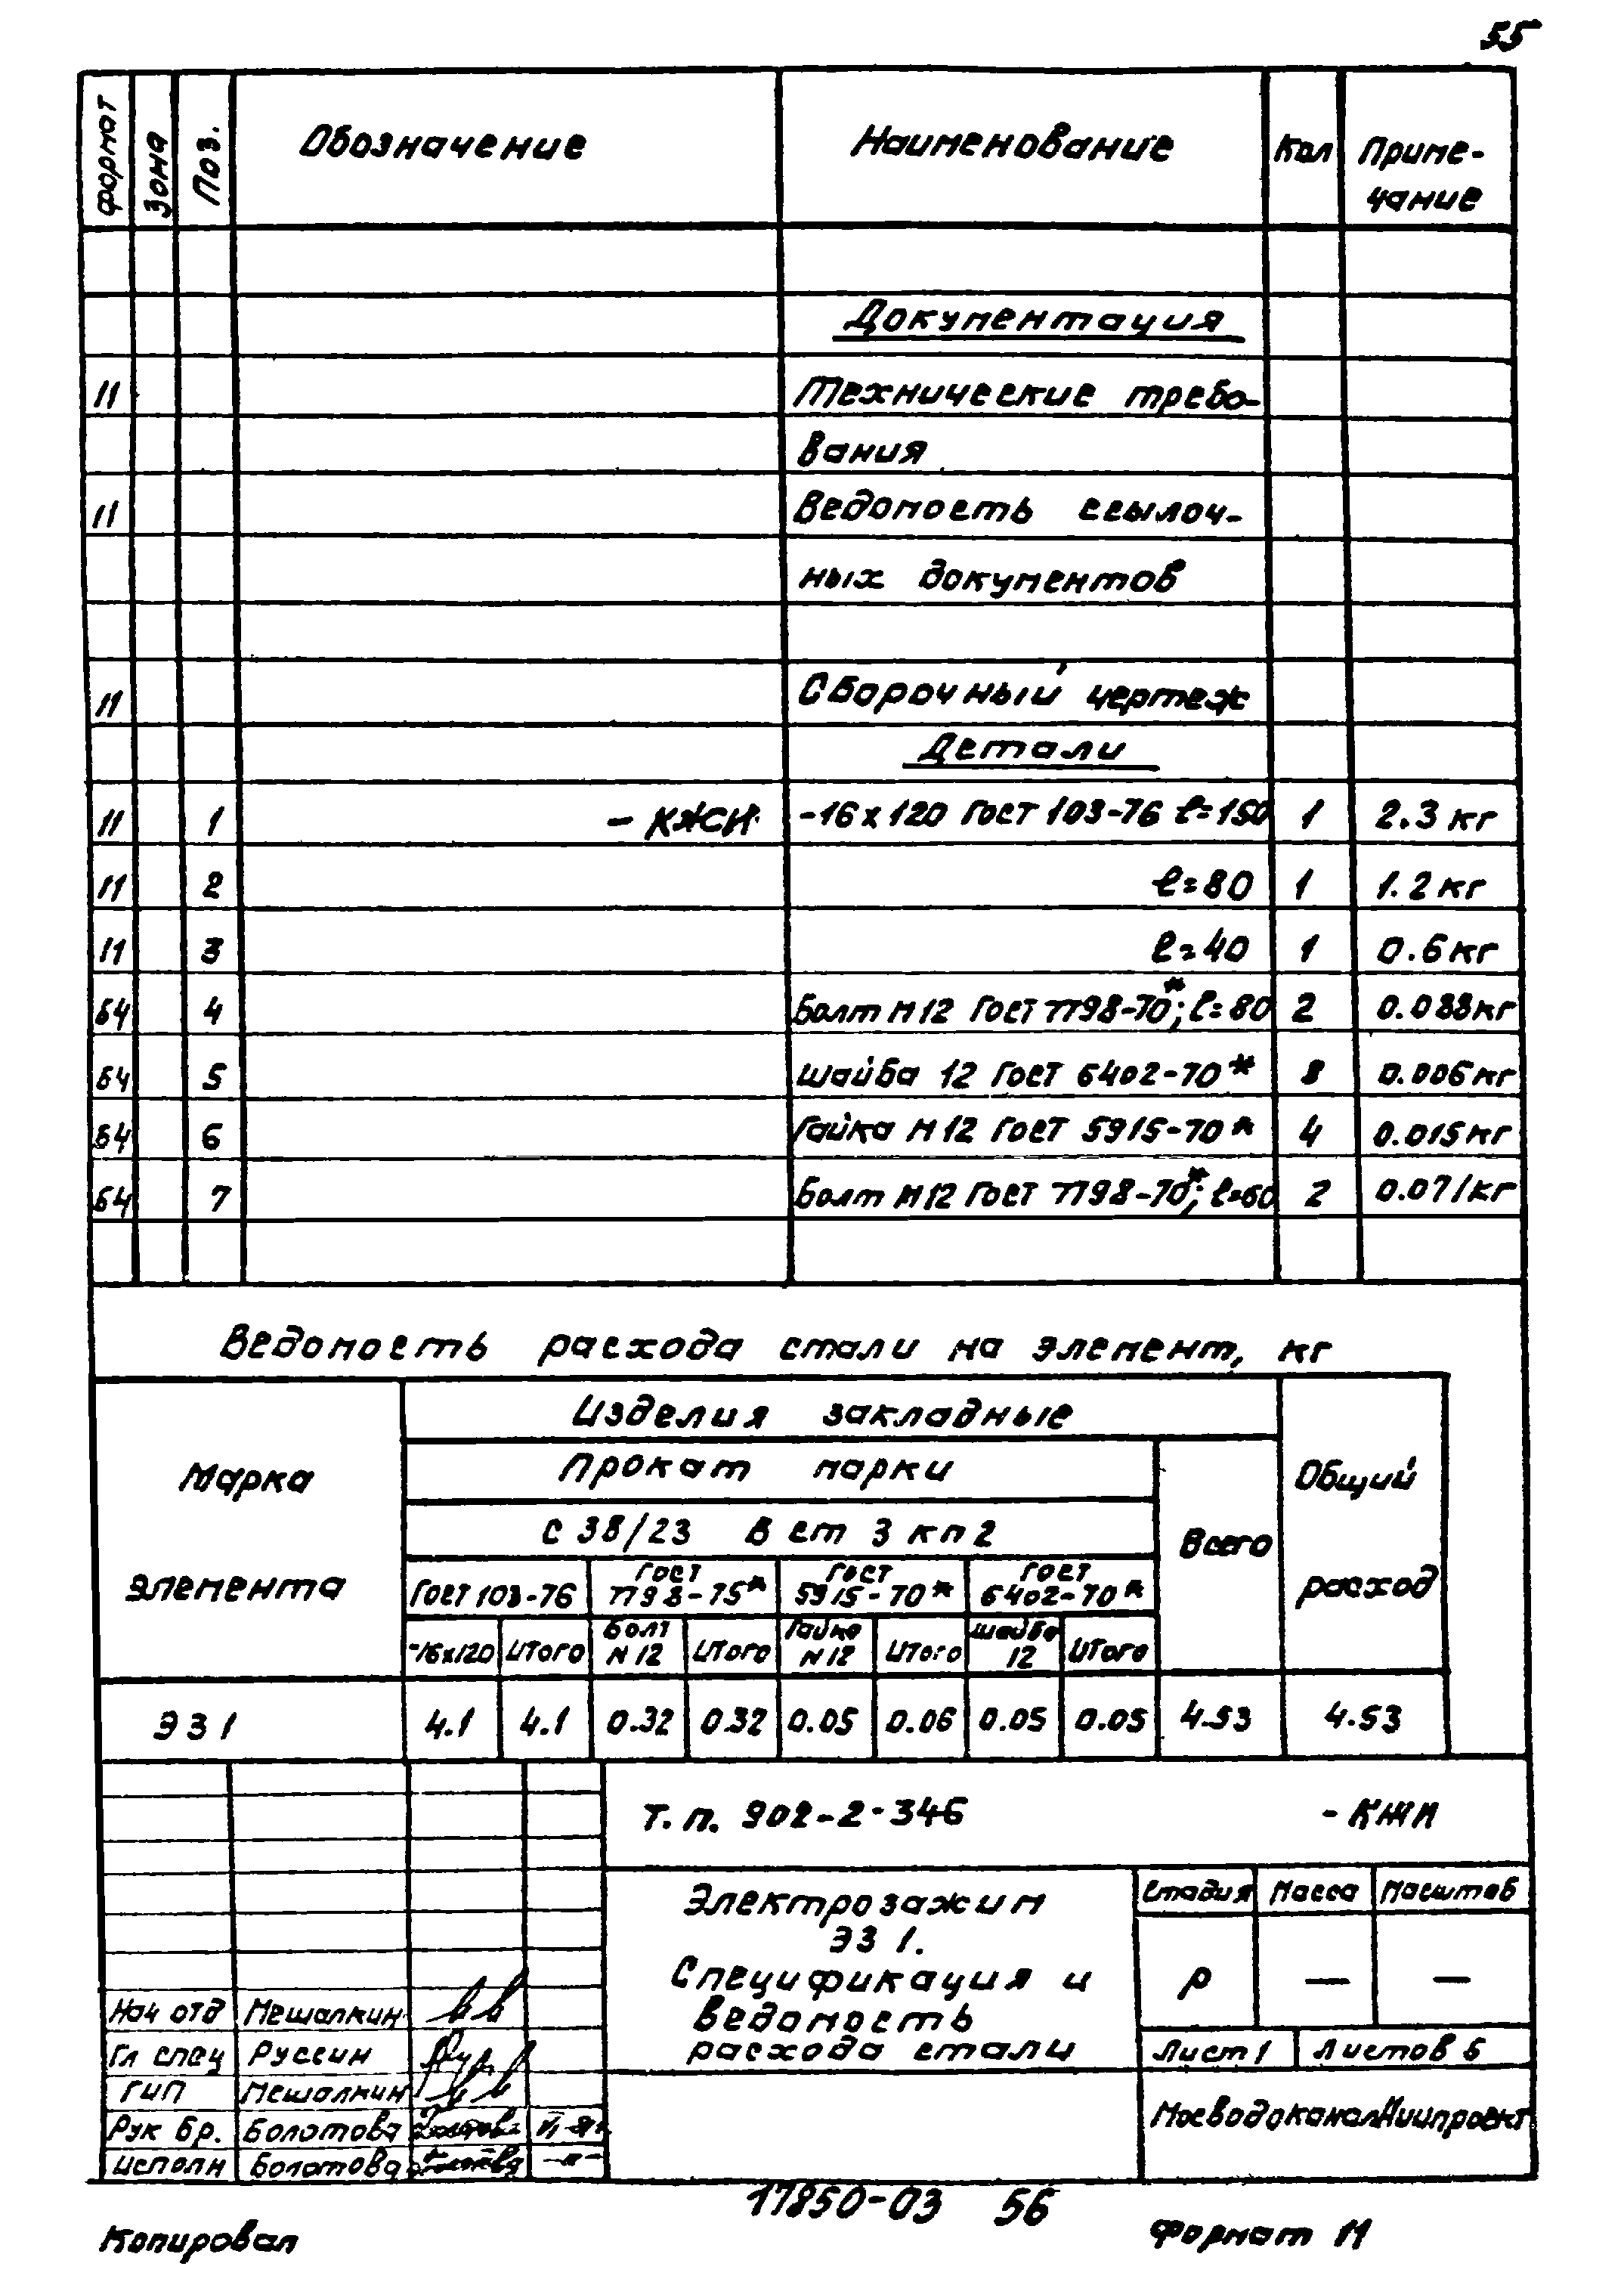 55
формат Зона Поз. Обозначение Наименование Кол Приме-
чание
Документация
11 Технические требо-
вания
11 Ведомость ссылоч-
ных документов
11 Сборочный чертеж
Детали
11 1 - КЖИ -16х120 ГОСТ 103-76 ℓ=150 1 2.3 кг
11 2 ℓ=80 1 1.2 кг
11 3 ℓ=40 1 0.6 кг
б4 4 Болт М12 ГОСТ 7798-70*; ℓ=80 2 0.088 кг
б4 5 шайба 12 ГОСТ 6402-70* 8 0.006 кг
б4 6 Гайка М12 ГОСТ 5915-70* 4 0.015 кг
б4 7 Болт М12 ГОСТ 7798-70*; ℓ=60 2 0.071 кг
Ведомость расхода стали на элемент, кг
Марка элемента
Изделия закладные
Общий расход
Прокат марки
Всего
С 38/23 В ст 3 кп 2
ГОСТ 103-76 ГОСТ 7798-75* ГОСТ 5915-70* ГОСТ 6402-70*
-16х120 Итого Болт М12 Итого Гайка М12 Итого шайба 12 Итого
ЭЗ 1 4.1 4.1 0.32 0.32 0.05 0.06 0.05 0.05 4.53 4.53
Т. п. 902-2-346 - КЖИ
Электрозажим
ЭЗ 1.
Спецификация и
ведомость
расхода стали
Стадия Масса Масштаб
Р — —
Лист 1 Листов 6
МосводоканалНИИпроект
Нач отд Мешалкин
Гл спец Руссин
ГИП Мешалкин
Рук бр. Болотова
исполн Болотова
17850-03 56
Копировал Формат 11